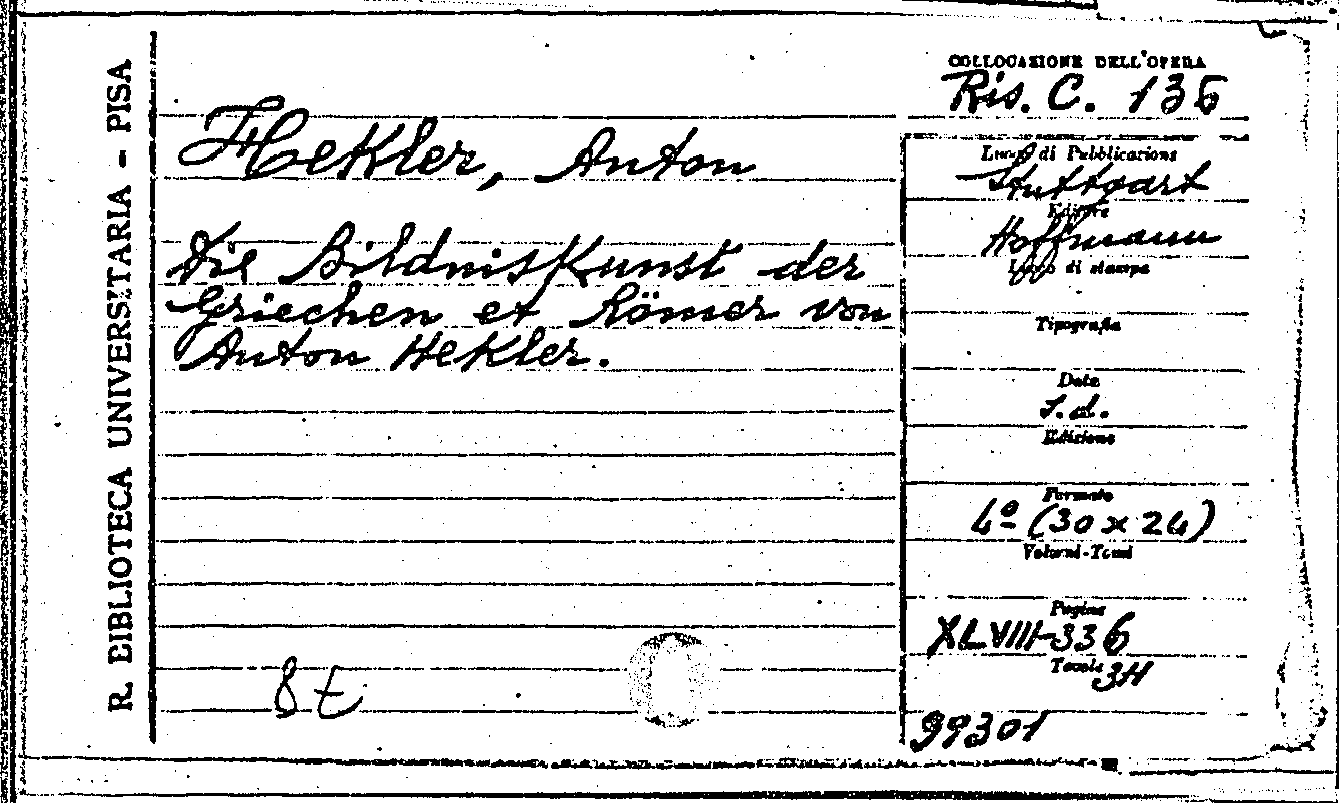 R. BIBLIOTECA UNIVERSITARIA - PISA
COLLOCAZIONE DELL'OPERA
Ris. C. 136
Hekler, Anton
Die Bildniskunst der
Griechen et Römer von
Anton Hekler.
Luogo di Pubblicazione
Stuttgart
Editore
Hoffmann
Luogo di stampa
Tipografia
Data
s.d.
Edizione
Formato
4º (30 x 24)
Volumi-Tomi
Pagine
XLVIII-336
Tavole
99301